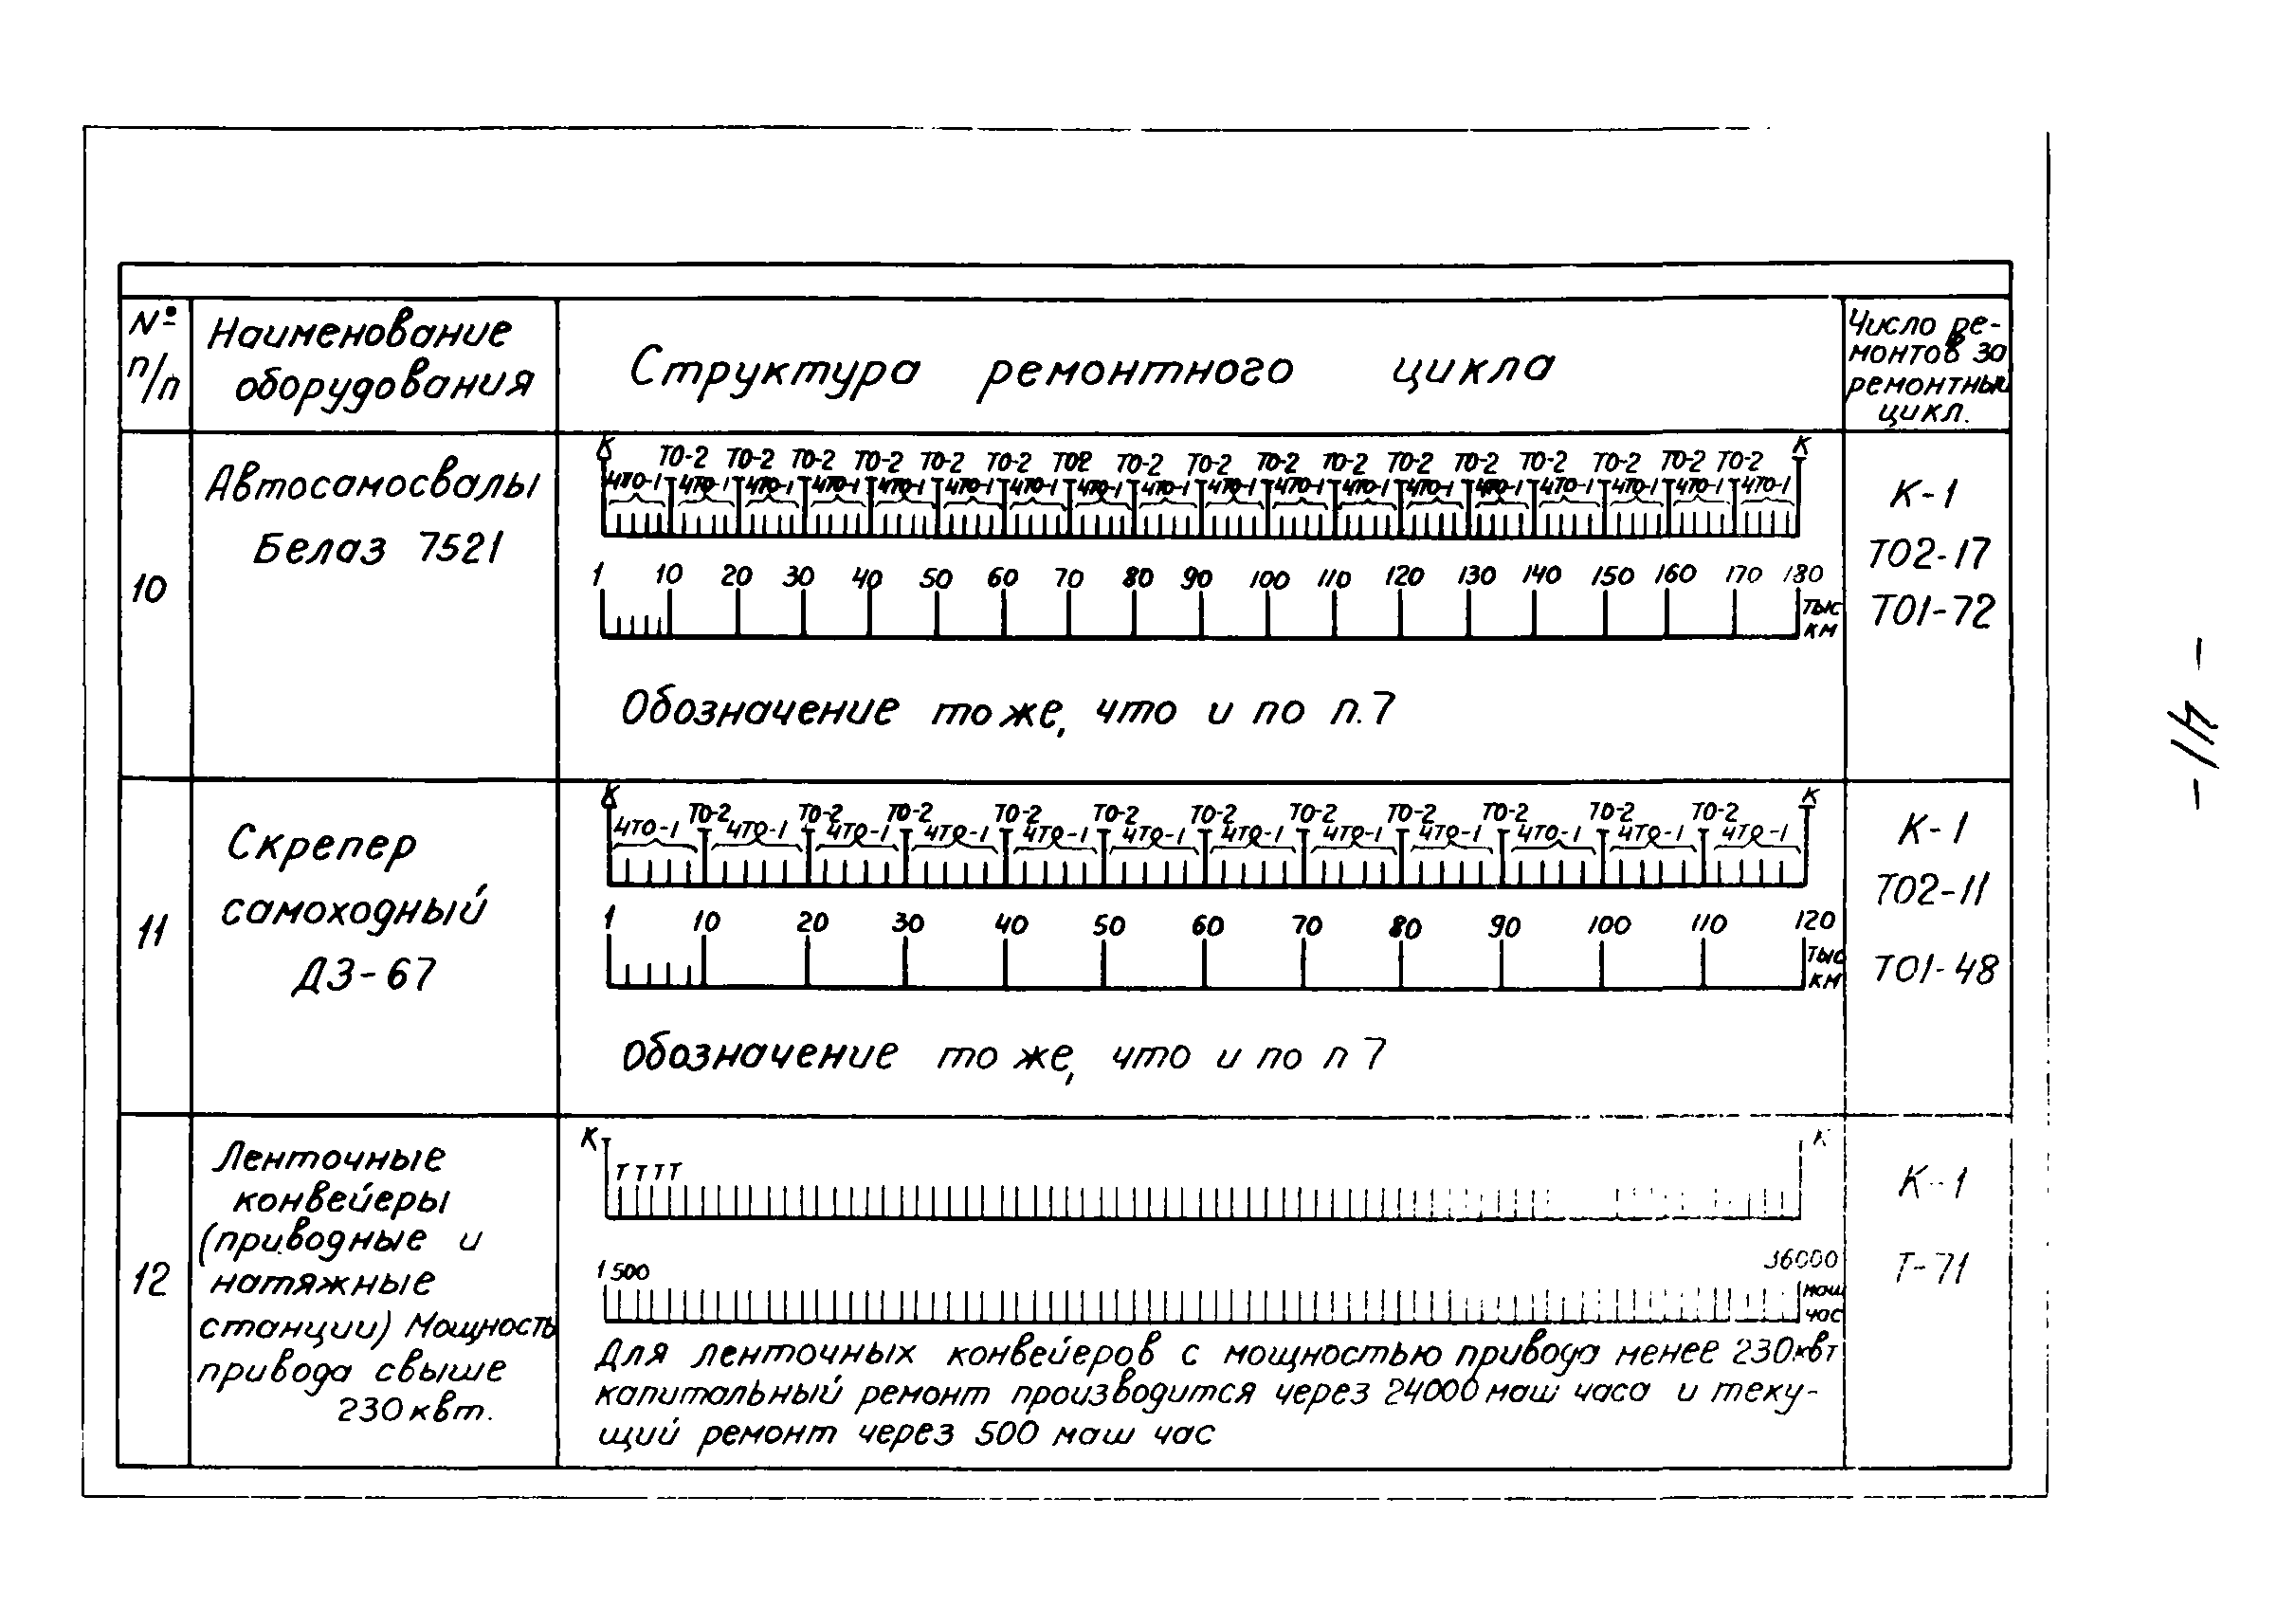 № п/п
Наименование оборудования
Структура ремонтного цикла
Число ре-
монтов за
ремонтный
цикл.
10
Автосамосвалы
Белаз 7521
К ТО-2 ТО-2 ТО-2 ТО-2 ТО-2 ТО-2 ТО2 ТО-2 ТО-2 ТО-2 ТО-2 ТО-2 ТО-2 ТО-2 ТО-2 ТО-2 ТО-2 К
4ТО-1 4ТО-1 4ТО-1 4ТО-1 4ТО-1 4ТО-1 4ТО-1 4ТО-1 4ТО-1 4ТО-1 4ТО-1 4ТО-1 4ТО-1 4ТО-1 4ТО-1 4ТО-1 4ТО-1 4ТО-1
1 10 20 30 40 50 60 70 80 90 100 110 120 130 140 150 160 170 180
тыс
км
Обозначение то же, что и по п. 7
К-1
ТО2-17
ТО1-72
11
Скрепер
самоходный
ДЗ-67
К ТО-2 ТО-2 ТО-2 ТО-2 ТО-2 ТО-2 ТО-2 ТО-2 ТО-2 ТО-2 ТО-2 К
4ТО-1 4ТО-1 4ТО-1 4ТО-1 4ТО-1 4ТО-1 4ТО-1 4ТО-1 4ТО-1 4ТО-1 4ТО-1 4ТО-1
1 10 20 30 40 50 60 70 80 90 100 110 120
тыс
км
Обозначение то же, что и по п 7
К-1
ТО2-11
ТО1-48
12
Ленточные
конвейеры
(приводные и
натяжные
станции) Мощность
привода свыше
230 квт.
К Т Т Т Т К
1 500 36000
маш
час
Для ленточных конвейеров с мощностью привода менее 230 квт
капитальный ремонт производится через 24000 маш часа и теку-
щий ремонт через 500 маш час
К-1
Т-71
- 114 -